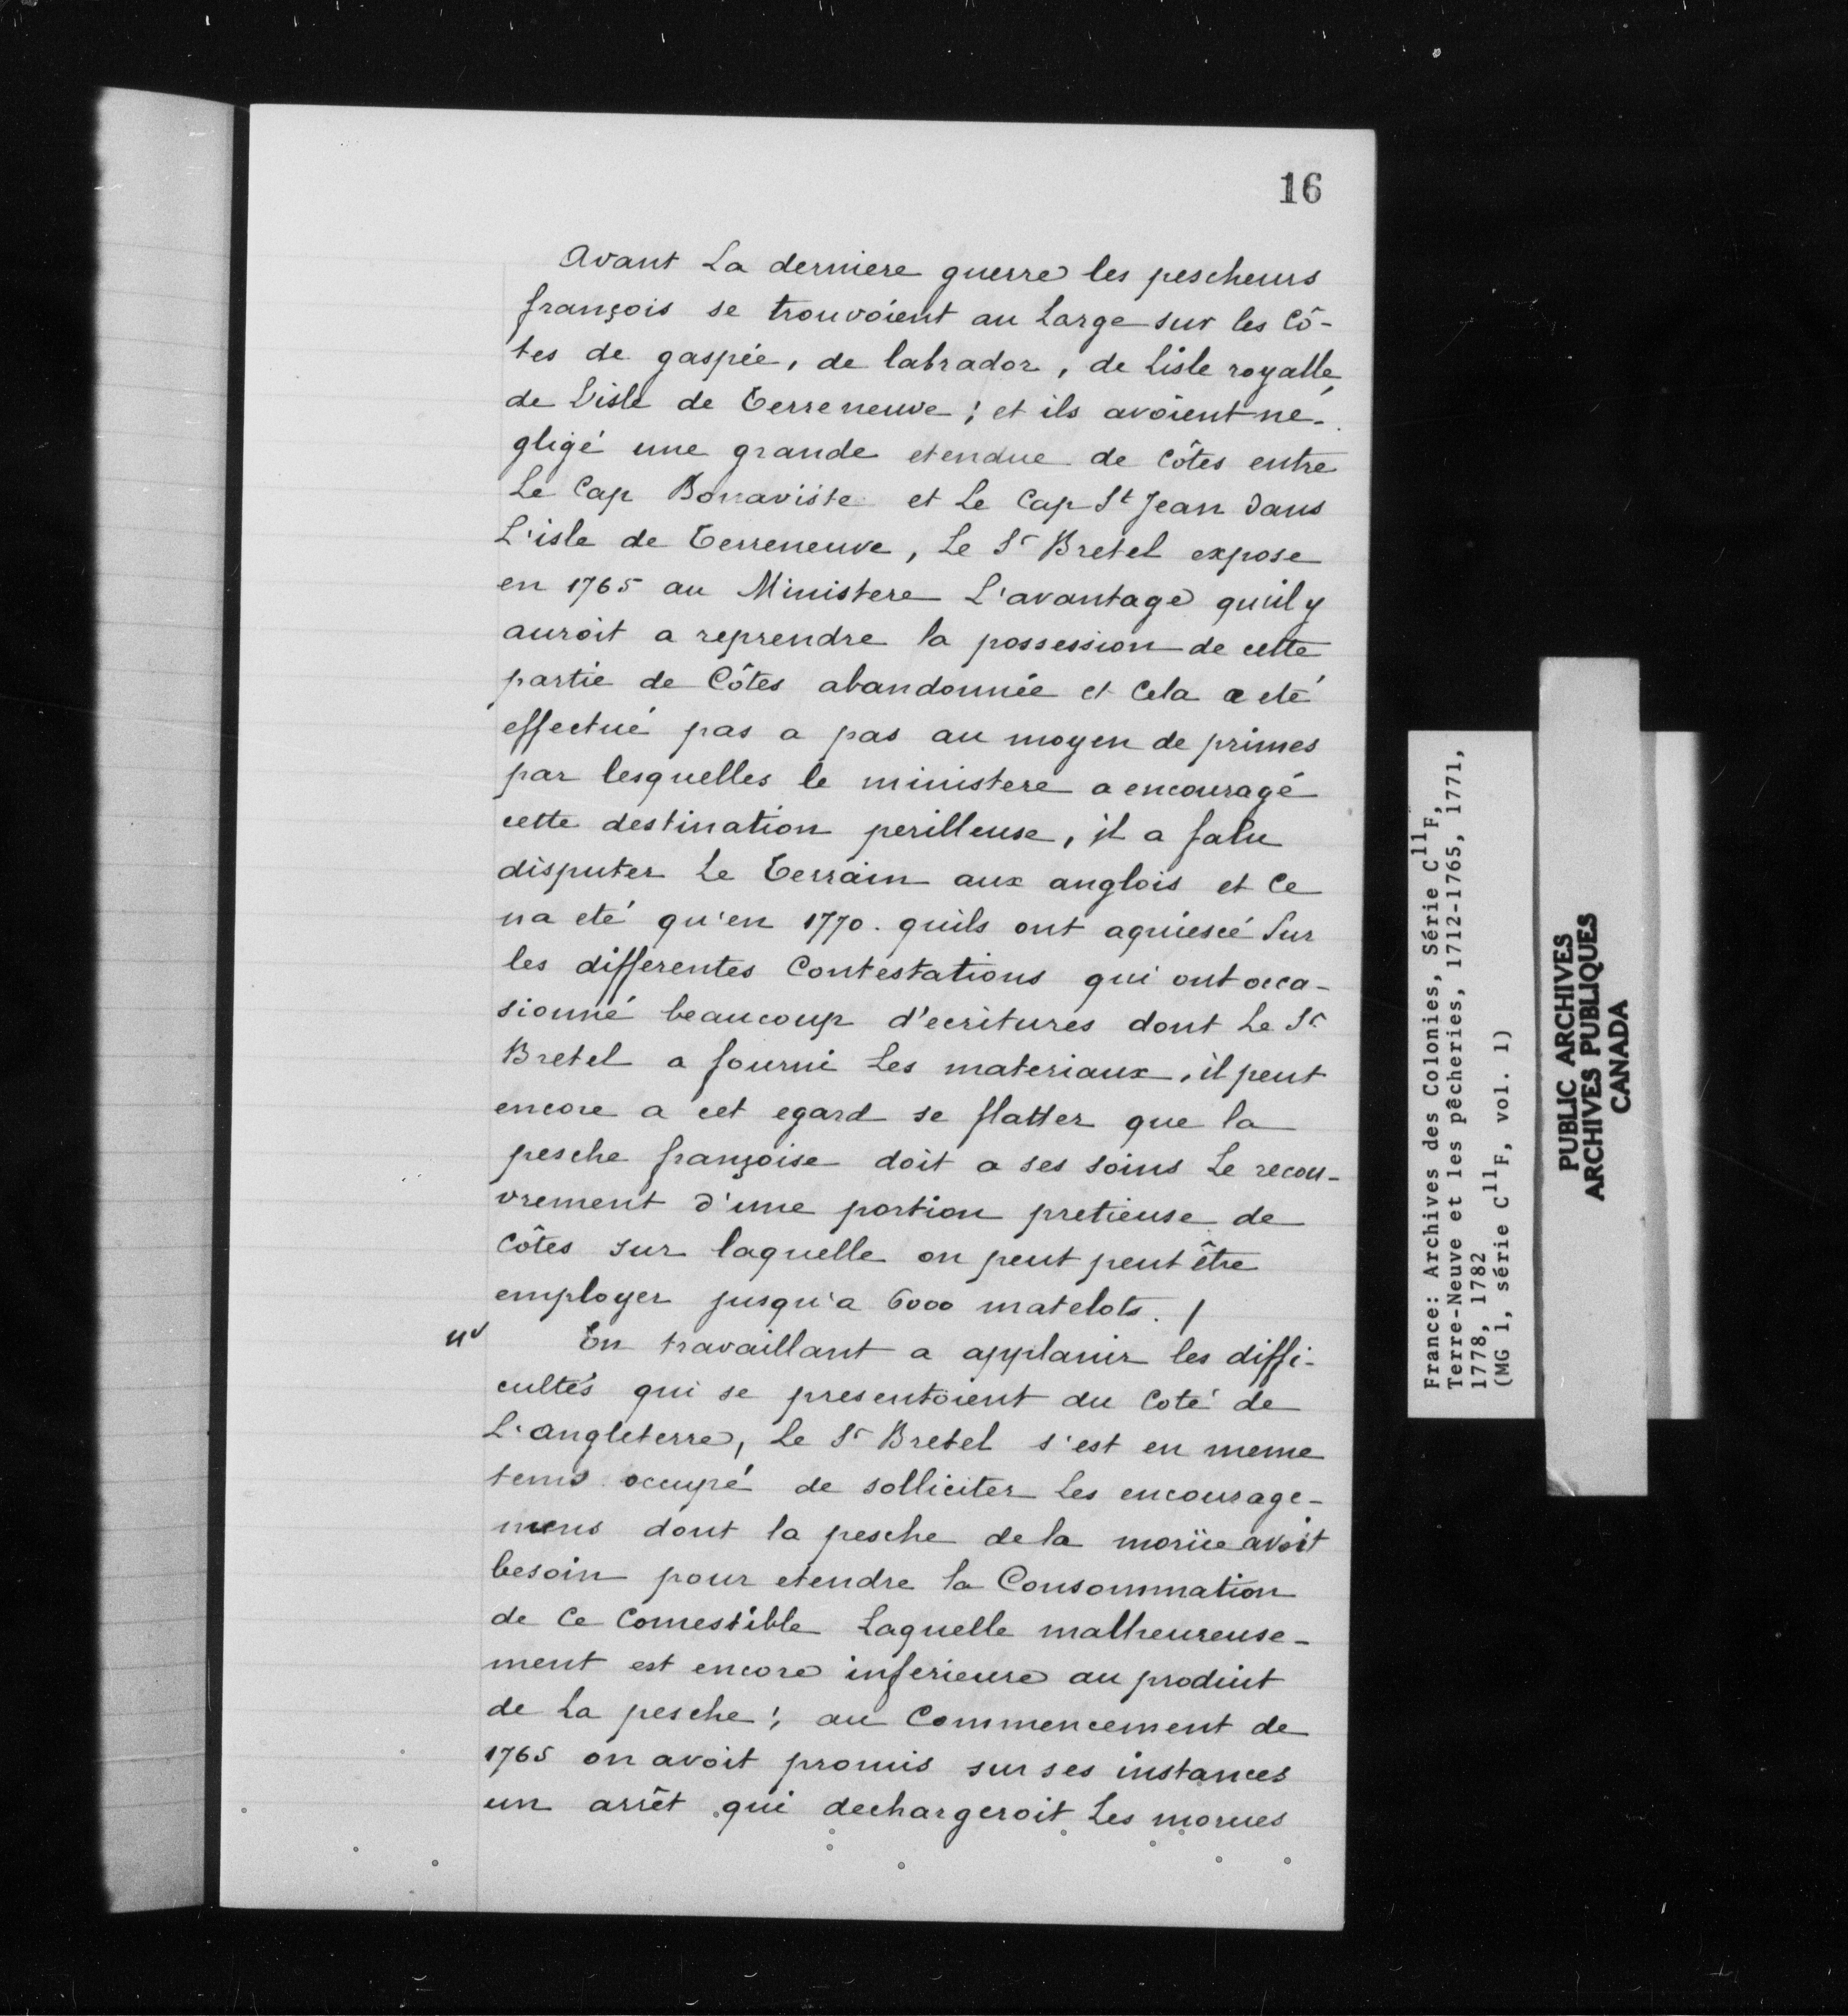 16
Avant La derniere guerre les pescheurs
françois se trouvoient au Large sur les Cô-
tes de gaspée, de labrador, de Lisle royalle,
de L'isle de Terreneuve ; et ils avoient ne-
gligé une grande etendue de Côtes entre
Le Cap Bonaviste et Le Cap St Jean dans
L'isle de Terreneuve, Le Sr Bretel expose
en 1765 au Ministere L'avantage qu'il y
auroit a reprendre la possession de cette
partie de Côtes abandonnée et Cela a eté
effectué pas a pas au moyen de primes
par lesquelles le ministere a encouragé
cette destination perilleuse, il a falu
disputer Le Terrain aux anglois et Ce
na eté qu'en 1770. quils ont aquiescé Sur
les differentes Contestations qui ont occa-
sionné beaucoup d'ecritures dont Le Sr
Bretel a fourni Les materiaux, il peut
encore a cet egard se flatter que la
pesche françoise doit a ses soins Le recou-
vrement d'une portion pretieuse de
Côtes sur laquelle on peut peut être
employer jusqu'a 6000 matelots. /
En travaillant a applanir les diffi-
cultés qui se presentoient du Coté de
L'angleterre, Le Sr Bretel s'est en meme
tems occupé de solliciter Les encourage-
mens dont la pesche de la morüe avoit
besoin pour etendre la Consommation
de Ce Comestible Laquelle malheureuse-
ment est encore inferieure au produit
de La pesche ; au Commencement de
1765 on avoit promis sur ses instances
un arrêt qui dechargeroit Les morues
France: Archives des Colonies, Série C11F,
Terre-Neuve et les pêcheries, 1712-1765, 1771,
1778, 1782
(MG 1, série C11F, vol. 1)
PUBLIC ARCHIVES
ARCHIVES PUBLIQUES
CANADA